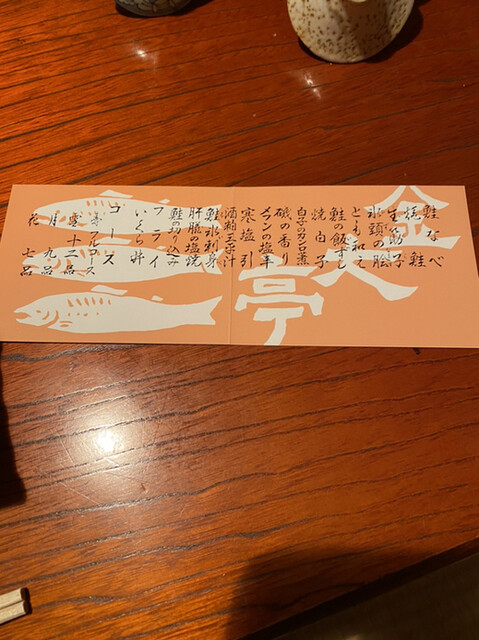 金大亭
鮭なべ
焼鮭
生筋子
氷頭の膾
とも和え
鮭の飯ずし
焼白子
磯の香り
メフンの塩辛
寒塩引
酒粕三平汁
鮭氷刺身
肝臓の塩焼
鮭の切り込み
フライ
いくら丼
コース
フルコース
雪十二品
月九品
花七品